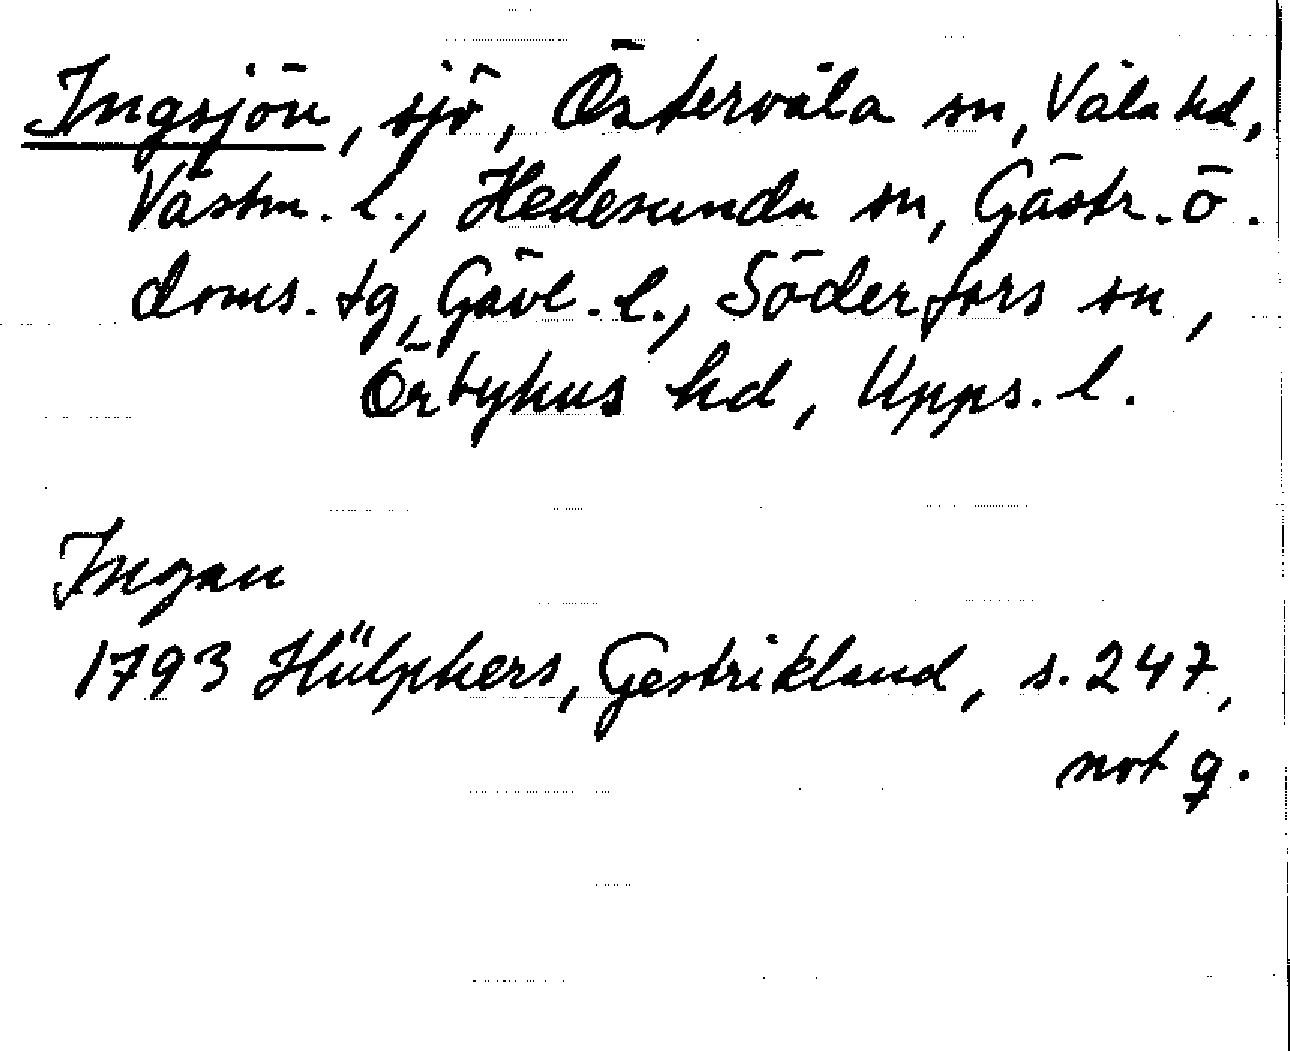 Ingsjön, sjö, Östervåla sn, Våla hd,
Västm. l., Hedesunda sn, Gästr. ö.
doms. tg, Gävl. l., Söderfors sn,
Örbyhus hd, Upps. l.
Ingan
1793 Hülphers, Gestrikland, s. 247,
not q.